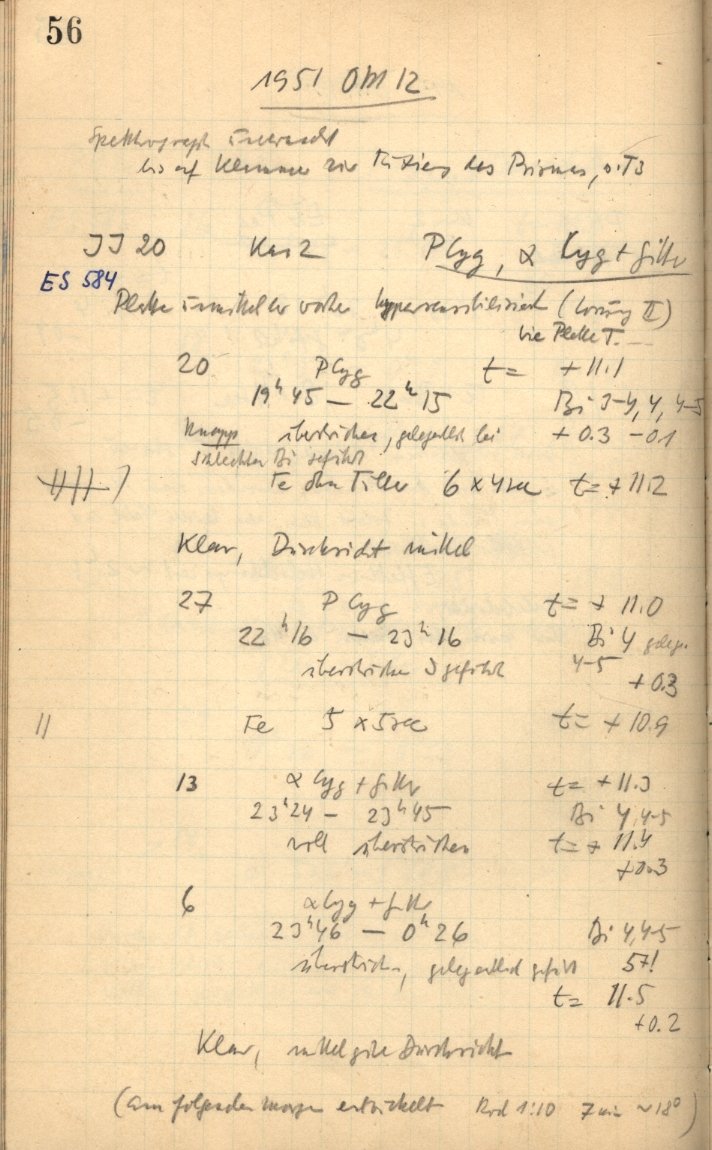 56
1951 Okt 12
Spektrograph
bis auf Klemmen zur des Prismas, o.T3
JJ 20 Kas 2 P Cyg, α Cyg + Gitter
ES 584
Platte unmittelbar vorher hypersensibilisiert (Lösung II)
wie Platte T.
20 P Cyg t = + 11.1
19ʰ 45 — 22ʰ 15 Bi 3-4, 4, 4-5
Knapp überstrichen, gelegentlich bei + 0.3 - 0.1
schlechtem Bi geführt
Fe ohne Filter 6 x 4 sec t = + 11.2
Klar, Durchsicht mittel
27 P Cyg t = + 11.0
22ʰ 16 — 23ʰ 16 Bi 4 gelegen.
überstrichen geführt 4-5
+ 0.3
Fe 5 x 5 sec t = + 10.9
13 α Cyg + Gitter t = + 11.3
23ʰ 24 — 23ʰ 45 Bi 4, 4-5
voll überstrichen t = + 11.4
+ 0.3
6 α Cyg + Gitter
23ʰ 46 — 0ʰ 26 Bi 4, 4-5
überstrichen, gelegentlich geführt 5?!
t = 11.5
+ 0.2
Klar, mittelgute Durchsicht
(am folgenden morgen entwickelt Rod 1:10 7 min ~ 18°)